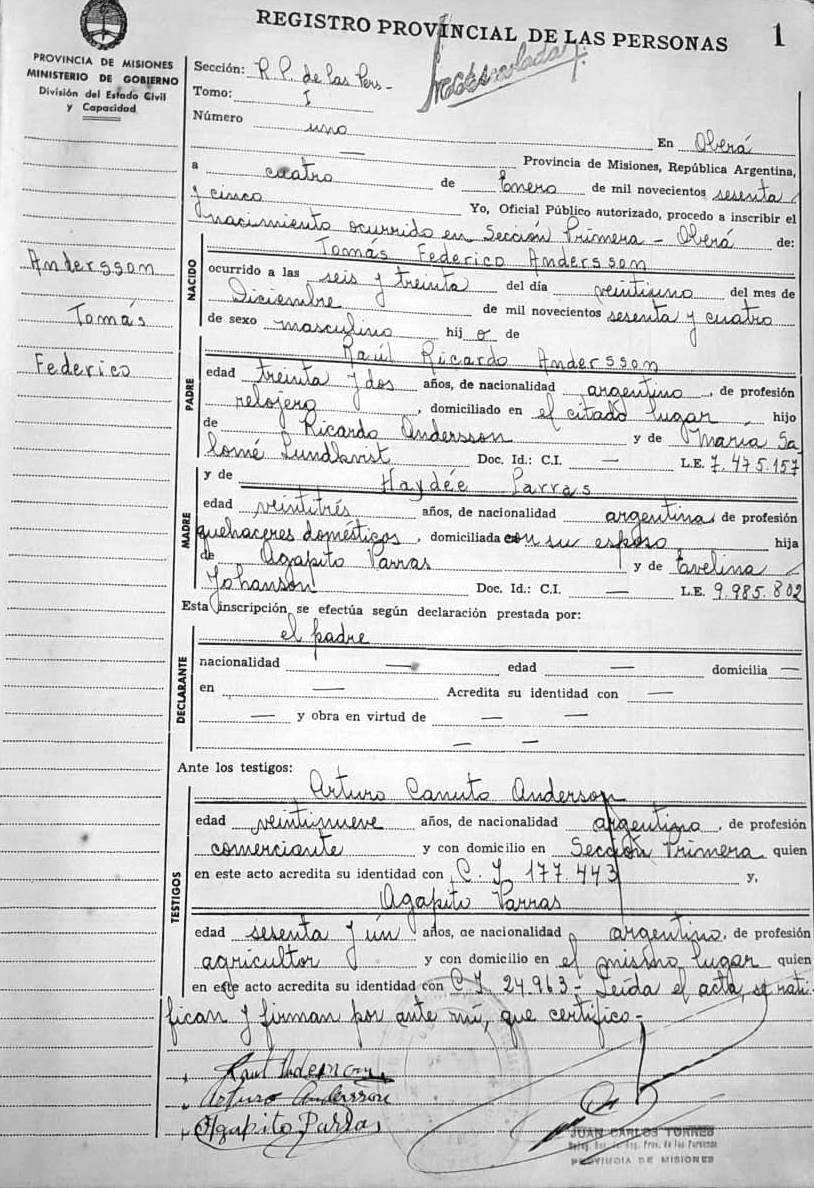 REGISTRO PROVINCIAL DE LAS PERSONAS 1
PROVINCIA DE MISIONES
MINISTERIO DE GOBIERNO
División del Estado Civil
y Capacidad
Sección: R. P. de las Pers -
Tomo: I
Número uno
En Oberá
— Provincia de Misiones, República Argentina,
a cuatro de Enero de mil novecientos sesenta
y cinco Yo, Oficial Público autorizado, procedo a inscribir el
nacimiento ocurrido en Sección Primera - Oberá de:
Andersson
Tomás
Federico
NACIDO
Tomás Federico Andersson
ocurrido a las seis y treinta del día veintiuno del mes de
Diciembre de mil novecientos sesenta y cuatro
de sexo masculino hij o de
PADRE
Raúl Ricardo Andersson
edad treinta y dos años, de nacionalidad argentino, de profesión
relojero, domiciliado en el citado lugar hijo
de Ricardo Andersson y de María Sa-
lomé Lundkvist Doc. Id.: C.I. — L.E. 7.475.157
MADRE
y de Haydée Parras
edad veintitrés años, de nacionalidad argentina, de profesión
quehaceres domésticos, domiciliada con su esposo hija
de Agapito Parras y de Evelina
Johanson Doc. Id.: C.I. — L.E. 9.985.802
Esta inscripción se efectúa según declaración prestada por:
DECLARANTE
el padre
nacionalidad — edad — domicilia —
en — Acredita su identidad con —
— y obra en virtud de — —
— —
Ante los testigos:
TESTIGOS
Arturo Canuto Anderson
edad veintinueve años, de nacionalidad argentino, de profesión
comerciante y con domicilio en Sección Primera quien
en este acto acredita su identidad con C. I. 177.443 y,
Agapito Parras
edad sesenta y un años, de nacionalidad argentino, de profesión
agricultor y con domicilio en el mismo lugar quien
en este acto acredita su identidad con C. I. 24.963 - Leída el acta, se rati-
fican y firman por ante mí, que certifico -
Raul
Arturo Andersson
Agapito Parras
JUAN CARLOS TORRES
Prov. de las Personas
PROVINCIA DE MISIONES